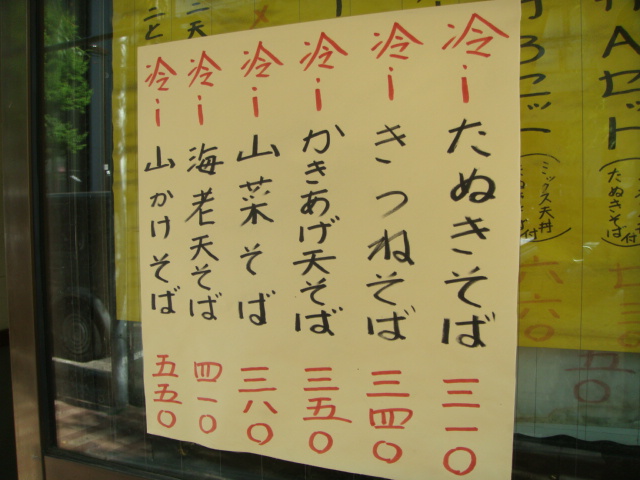 冷i たぬきそば 三一〇
冷i きつねそば 三四〇
冷i かきあげ天そば 三五〇
冷i 山菜そば 三六〇
冷i 海老天そば 四一〇
冷i 山かけそば 五五〇
Aセット
(たぬきそば付
(ミックス天丼